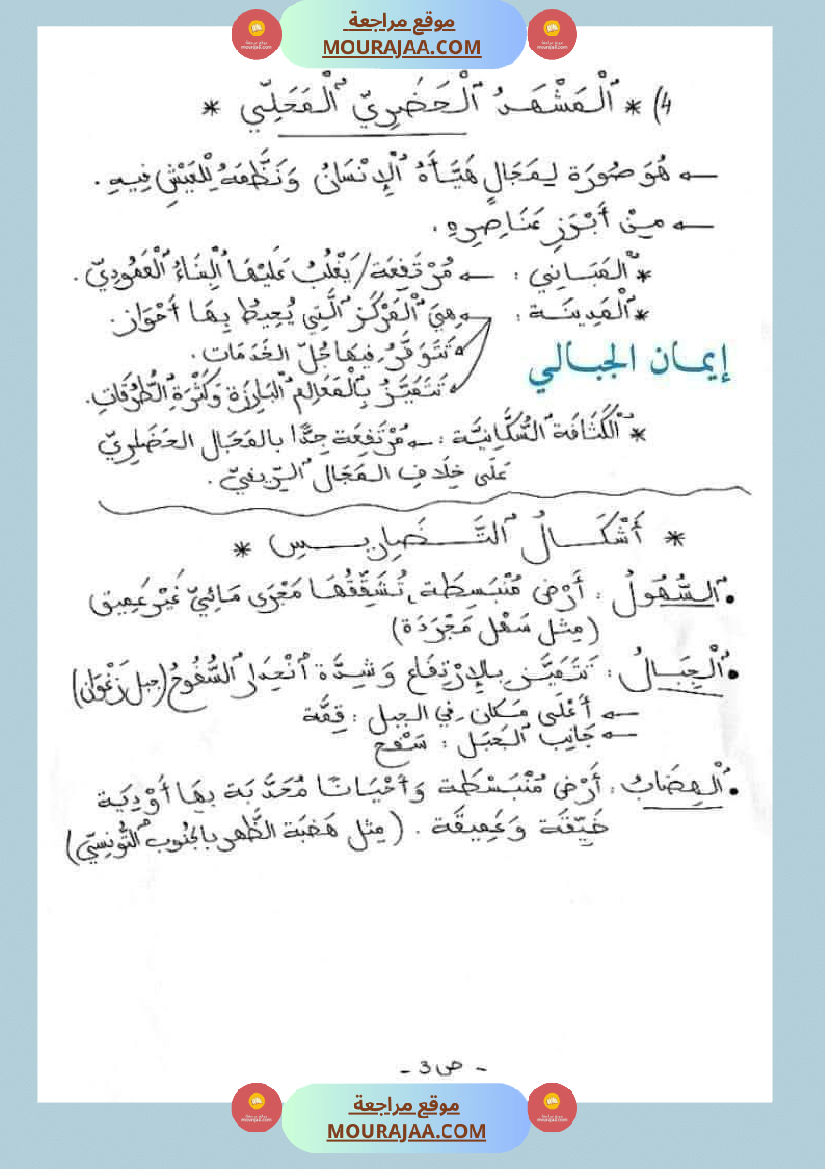 موقع مراجعة
MOURAJAA.COM
4) * ٱلْمَشْهَدُ ٱلْحَضَرِيّ ٱلْمَحَلِّي *
← هُوَ صُورَة لِمَجَالٍ هَيَّأَهُ ٱلْإِنْسَانُ وَنَظَّمَهُ لِلْعَيْشِ فِيهِ .
← مِنْ أَبْرَزِ عَنَاصِرِهِ .
* ٱلْمَبَانِي : ← مُرْتَفِعَة / يَغْلُبُ عَلَيْهَا ٱلْبِنَاءُ ٱلْعَمُودِيّ .
* ٱلْمَدِينَة : ← هِيَ ٱلْمَرْكَز ٱلَّتِي يُحِيطُ بِهَا أَحْوَاز .
← تَتَوَفَّرُ فِيهَا جُلّ الخَدَمَات .
← تَتَمَيَّزُ بِٱلْمَعَالِم ٱلْبَارِزَة وَكَثْرَة ٱلطُّرُقَاتِ .
إيمان الجبالي
* ٱلْكَثَافَة ٱلسُّكَّانِيَّة : ← مُرْتَفِعَة جِدًّا بالمَجَال الحَضَرِيّ
عَلَى خِلَافِ المَجَال ٱلرِّيفِيّ .
* أَشْكَـالُ ٱلتَّـضَارِيـسِ *
• ٱلسُّهُولُ : أَرْض مُنْبَسِطَة ، تُشَقِّقُهَا مَجْرَى مَائِيّ غَيْر عَمِيق
(مِثل سَهْل مَجْرَدَة)
• ٱلْجِبَـالُ : تَتَمَيَّز بِالاِرْتِفَاع وَشِدَّة ٱنْحِدَار ٱلسُّفُوحُ (جبل زَغْوَان)
← أَعْلَى مَكَان فِي الجبل : قِمَّة
← جَانِب ٱلجَبَل : سَفْح
• ٱلْهِضَابُ : أَرْض مُنْبَسْطَة وَأَحْيَانًا مُحَدَّبَة بِهَا أَوْدِيَة
ضَيِّقَة وَعَمِيقَة . (مِثل هَضَبَة الظَّهر بالجَنُوب ٱلتُّونِسِيّ)
- ص 3 -
موقع مراجعة
MOURAJAA.COM